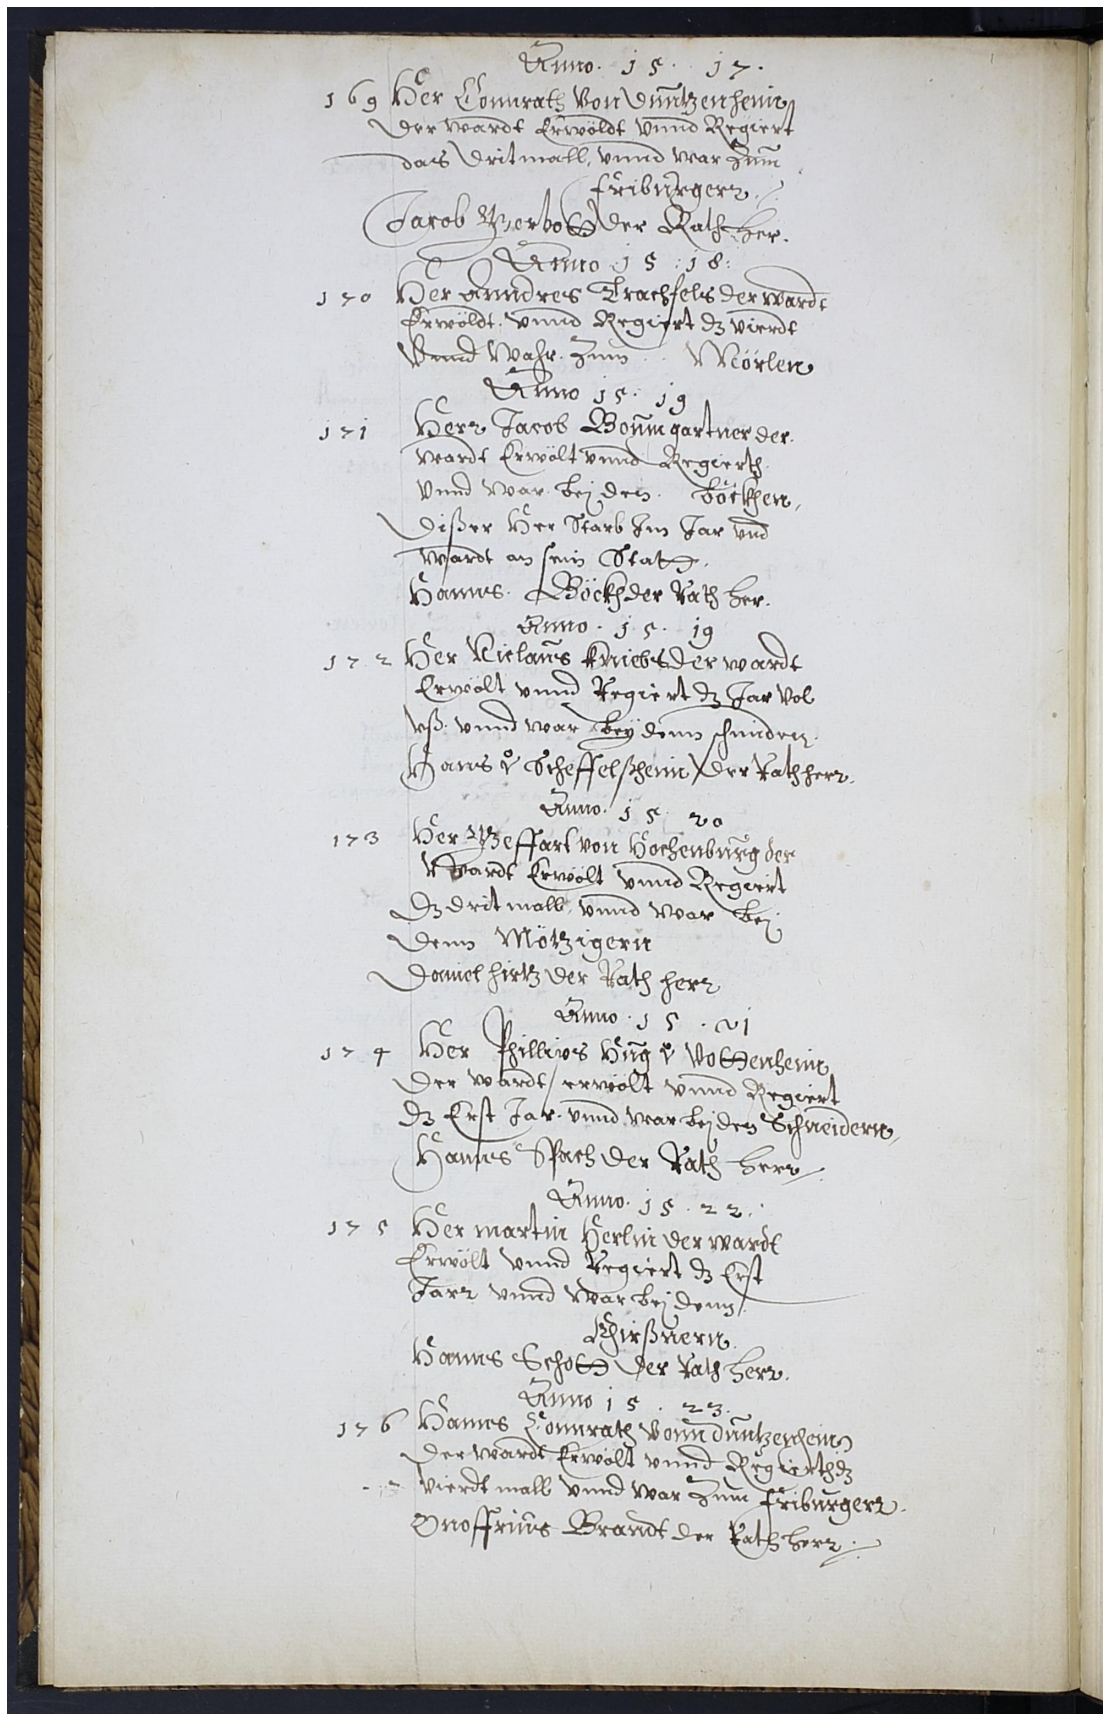 Anno. 15. 17.
169 Her Connrath von Duntzenheim
Der wardt Erwöldt vnnd Regiert
das Dritmall, vnnd war Zum
friburger.
Jacob der Rath Her.
Anno 15:18:
170 Her Anndres Trachfels der wardt
Erwöldt. vnnd Regiert dz vierdt
Vnnd Wahr. Zum Mörlen
Anno 15: 19
171 Herr Jacob Boumgartner der.
wardt Erwölt vnnd Regierth
Vnnd war. bej den. böckhen,
Dißer Her Starb Im Jar vnd
wardt an sein Statt.
Hanns. Böckh der Rath her.
Anno. 15. 19
172 Her Niclaus kniebs der wardt
Erwölt vnnd Regiert dz Jar Vol
vß. vnnd war bey denn schmiden.
Hans v Scheffelßheim der Rath herr.
Anno. 15. 20
173 Her von Hochenburg der
wardt Erwölt vnnd Regiert
dz dritmall, vnnd war bej
denn Mötzigern
Daniel hirtz der Rath herr
Anno. 15. 21
174 Her Phillips Hug v Vottenheim
Der wardt erwölt vnnd Regiert
dz Erst Jar. vnnd war bej den Schneidern,
Hanns Spach der Rath herr
Anno. 15. 22.
175 Her martin Herlin der wardt
Erwölt vnnd Regiert dz Erst
Jarr vnnd war bej denn
Khirßnern.
Hanns Schott der Rath herr.
Anno 15. 23.
176 Hanns Connrath Vonn duntzenheim
Der wardt Erwölt vnnd Regierth dz
vierdt mall vnnd war Zum friburger.
Onoffrius Brandt der Rath herr.